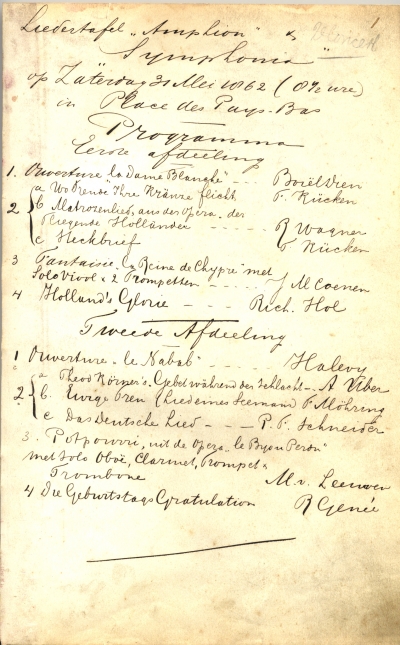 1
Liedertafel „Amphion" &
Symphonia"
op Zaterdag 31 Mei 1862 (8½ ure)
in Place des Pays-Bas
Programma
Eerste afdeeling
1. Ouverture „la Dame Blanche" - - - Boiëldieu
a Wo Rendé Ihre Kränze flicht, F. Kücken
2 b Matrozenlied, aus der Opera. der
fliegende Holländer - - - - - R Wagner
c Steckbrief F Kücken
3 Fantaisie „la Reine de Chypre" met
Solo Viool & 2 Trompetten - - - - J M Coenen
4 Holland's Glorie - - - - Rich. Hol
Tweede Afdeeling
1 Ouverture „le Nabab" - - - - Halevy
a Theod Körner's Gebet während der Schlacht - A Über
2 b. Ewige Treu (Lied eines Seemand F Möhring
c Das Deutsche Lied - - - P. F. Schneider
3. Potpourri, uit de Opera „le Bijou Perdu"
met Solo Oboë, Clarinet, Trompet &
Trombone M. v. Leeuwen
4 Die Geburtstags Gratulation R Genée